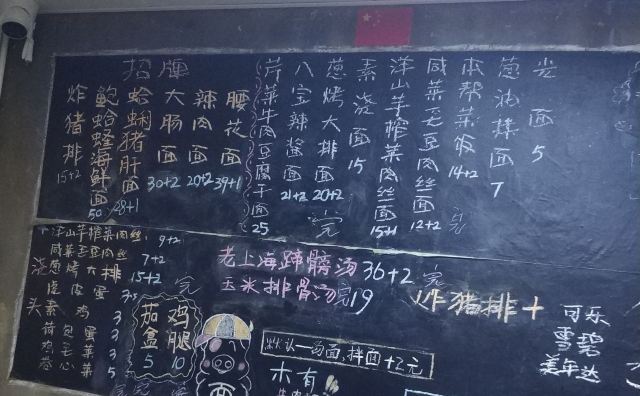 招牌
炸猪排 15+2
鲍蛤蝰海鲜面 50
蛤蜊猪肝面 28+1
大肠面 30+2
辣肉面 20+2
腰花面 39+1
芹菜牛肉豆腐干面 25
八宝辣酱面 21+2
葱烤大排面 20+2 元
素浇面 15
洋山芋榨菜肉丝面 15+1
咸菜毛豆肉丝面 12+2
本帮菜饭 14+2 元
葱油拌面 7
光面 5
洋山芋榨菜肉丝 9+2
咸菜毛豆肉丝 7+2
葱烤大排 15+2
皮蛋
浇头
素鸡 3
荷包蛋 3
鸡毛菜 3
卷心菜 5
元
茄盒 5
鸡腿 10
老上海蹄髈汤 36+2 元
玉米排骨汤 元 19
炸猪排+
默认一为面,拌面+2元
木有
可乐
雪碧
美年达